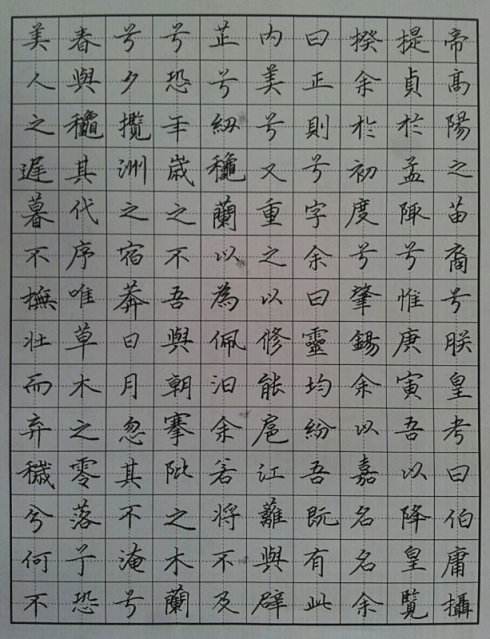 帝高陽之苗裔兮朕皇考曰伯庸攝
提貞於孟陬兮惟庚寅吾以降皇覽
揆余於初度兮肇錫余以嘉名名余
曰正則兮字余曰靈均紛吾既有此
内美兮又重之以修能扈江蘺與辟
芷兮紉龝蘭以為佩汩余若將不及
兮恐年歲之不吾與朝搴阰之木蘭
兮夕攬洲之宿莽日月忽其不淹兮
春與龝其代序唯草木之零落兮恐
美人之遲暮不撫壯而弃穢兮何不